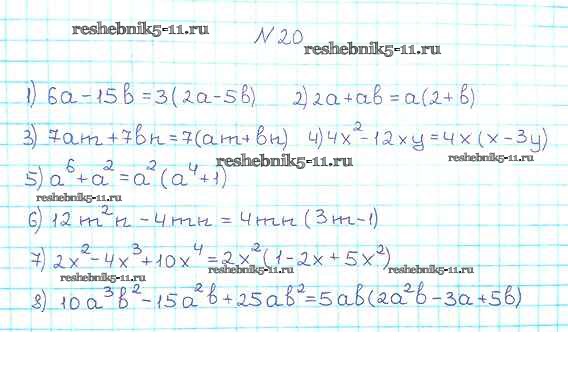 reshebnik5-11.ru
№20
reshebnik5-11.ru
1) 6a-15b=3(2a-5b) 2) 2a+ab=a(2+b)
3) 7am+7bn=7(am+bn) 4) 4x²-12xy=4x(x-3y)
reshebnik5-11.ru reshebnik5-11.ru
5) a⁶+a²=a²(a⁴+1)
reshebnik5-11.ru
6) 12m²n-4mn=4mn(3m-1)
7) 2x²-4x³+10x⁴=2x²(1-2x+5x²)
reshebnik5-11.ru reshebnik5-11.ru
8) 10a³b²-15a²b+25ab²=5ab(2a²b-3a+5b)